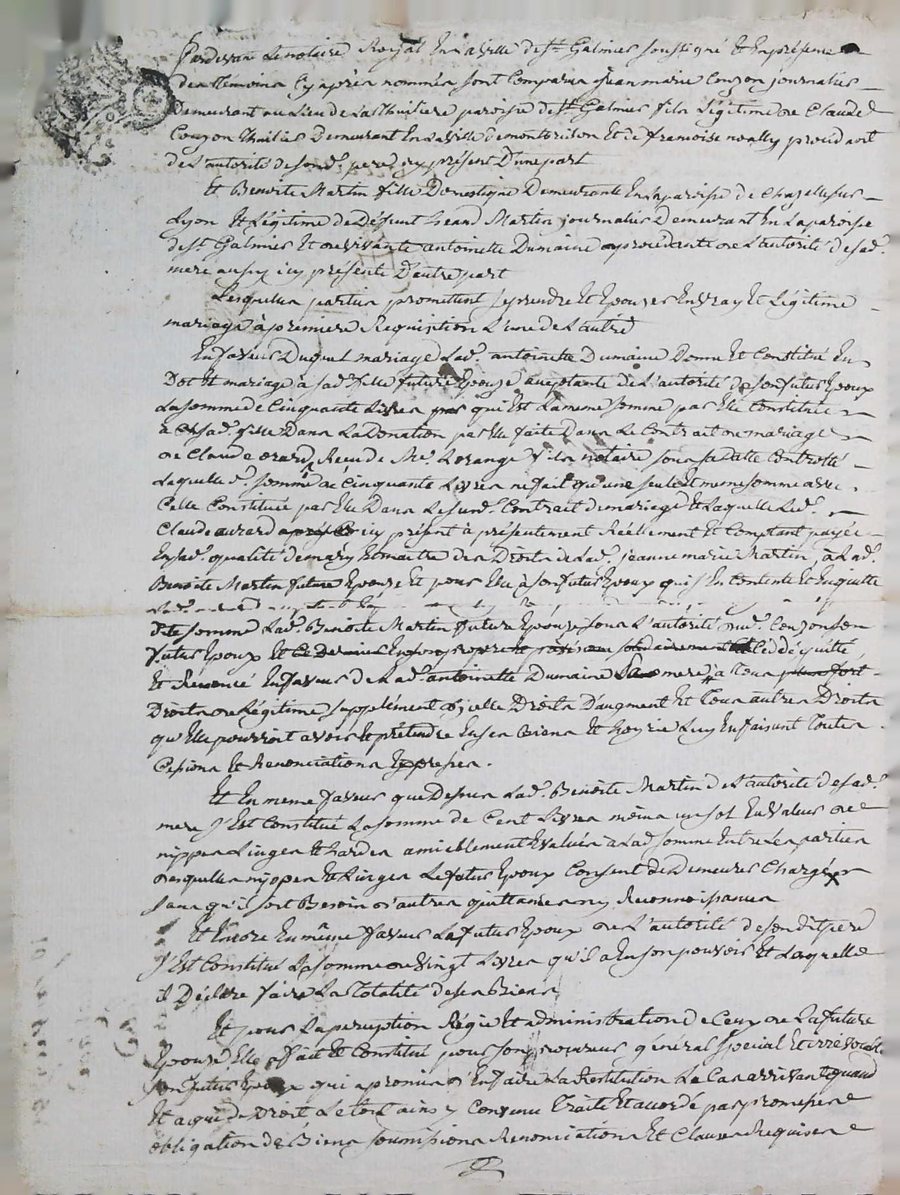 Pardevan Le notaire Royal En la ville de St. Galmier soussigné Et En présence
des temoins Cy après nommés sont Comparus Jean marie Couzon journalier
Demeurant au Lieu de La thuiliere paroisse de St. Galmier fils Légitime de Claude
Couzon thuilier Demeurant En La ville de montbrison Et de francoise noally procedant
de L'autorité de son d. pere icy présent D'une part
Et Benoite Martin fille Domestique Demeurante En la paroisse de Chazelle sur
Lyon Et Légitime de Défunt Jean Martin journalier Demeurant En La paroisse
de St. Galmier Et de vivante antoinette Dumaine procedante de L'autorité de sad.
mere aussy icy présente D'autre part
Lesquelles parties promettent se prendre Et Epouser En vray Et Légitime
mariage à premiere Requisition L'une de L'autre
En faveur Duquel mariage Lad. antoinette Dumaine Donne Et Constitue En
Dot Et mariage à sad. fille future Epouse acceptante de L'autorité de son futur Epoux
La somme de Cinquante Livres qui Est La meme somme par Elle Constituée
à sad. fille Dans La Donation par Elle faite Dans Le Contrait de mariage
de Claude Reçu de Me. Lerange notaire sous sa datte Controllé
Laquelle d. somme de Cinquante Livres ne fait qu'une seule Et meme somme avec
Celle Constituée par Elle Dans Le susd. Contrait de mariage Et Laquelle Led.
Claude icy présent à présentement Réellement Et Comptant payée
En sad. qualité de mary Et maitre des Droits de Lad. jeanne marie Martin, à Lad.
Benoite Martin future Epouse Et pour Elle à son futur Epoux qui s'En Contente Et En quitte
dite somme Lad. Benoite Martin future Epouse sous L'autorité dud. Couzon son
futur Epoux Et Ce Dernier
Et Renoncé En faveur de Lad. antoinette Dumaine sa mere à tous
Droits de Légitime supplément D'icelle Droits D'augment Et tous autres Droits
qu'Elle pourroit avoir Et prétendre En ses Biens Et Hoyrie Luy En faisant Toutes
Cessions Et Renonciations Expresses.
Et En meme faveur que Dessus Lad. Benoite Martin de L'autorité de sad.
mere s'Est Constitué La somme de Cent Livres moins un sol En valeur de
nippes Linges Et hardes amiablement Evalués à Lad. somme Entre Les parties
desquelles nippes Et Linges Le futur Epoux Consent de Demeurer Chargé
sans qu'il soit Besoin d'autres quittances ny Reconnoissances
Et Encore En même faveur Le futur Epoux de L'autorité de son dit pere
s'Est Constitué La somme de vingt Livres qu'il a En son pouvoir Et Laquelle
il Déclare faire La Totalité de ses Biens
Et pour La perception Régie Et administration de Ceux de La future
Epouse Elle a fait Et Constitué pour son procureur général special Et irrevocable
son futur Epoux qui a promis d'En faire La Restitution Le Cas arrivant quand
Et à qui de Droit Le tout ainsy Convenu Traité Et accordé par promesses
obligation de Biens soumissions Renonciations Et Clauses Requises